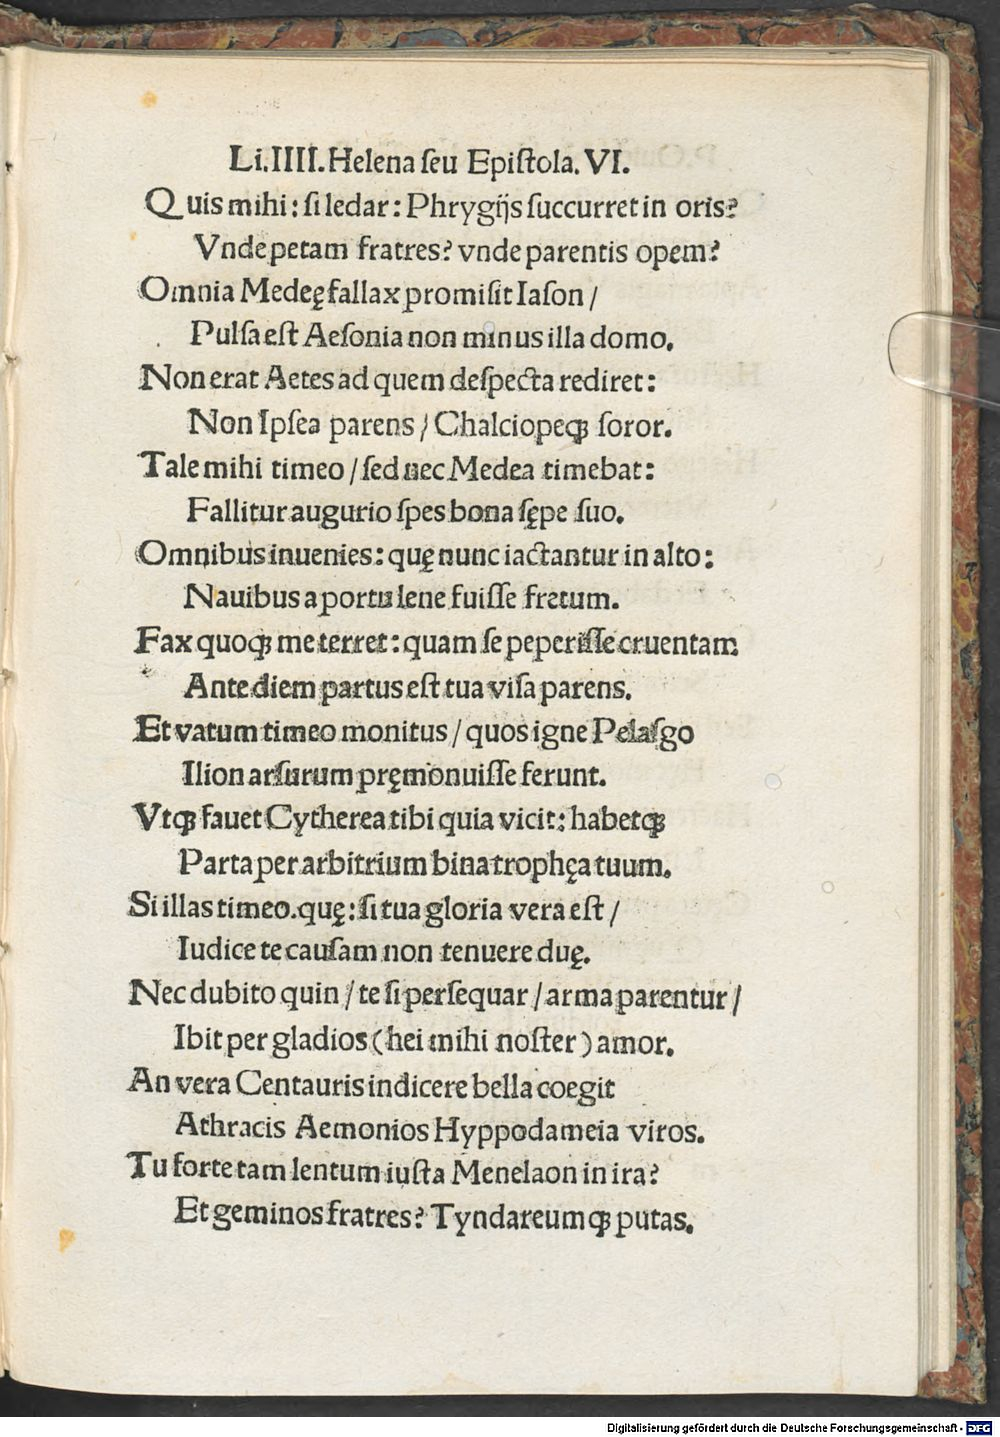 Li.IIII.Helena ſeu Epiſtola.VI.
Quis mihi: ſi ledar: Phrygijs ſuccurret in oris?
Vnde petam fratres? vnde parentis opem?
Omnia Medeę fallax promiſit Iaſon /
Pulſa eſt Aeſonia non minus illa domo.
Non erat Aetes ad quem deſpecta rediret:
Non Ipſea parens / Chalciopeqꝫ ſoror.
Tale mihi timeo / ſed nec Medea timebat:
Fallitur augurio ſpes bona ſępe ſuo.
Omnibus inuenies: quę nunc iactantur in alto:
Nauibus a portu lene fuiſſe fretum.
Fax quoqꝫ me terret: quam ſe peperiſſe cruentam
Ante diem partus eſt tua viſa parens.
Et vatum timeo monitus / quos igne Pelaſgo
Ilion arſurum pręmonuiſſe ferunt.
Vtqꝫ fauet Cytherea tibi quia vicit: habetqꝫ
Parta per arbitrium bina trophęa tuum.
Si illas timeo.quę: ſi tua gloria vera eſt /
Iudice te cauſam non tenuere duę.
Nec dubito quin / te ſi perſequar / arma parentur /
Ibit per gladios (hei mihi noſter) amor.
An vera Centauris indicere bella coegit
Athracis Aemonios Hyppodameia viros.
Tu forte tam lentum iuſta Menelaon in ira?
Et geminos fratres? Tyndareumqꝫ putas.
Digitalisierung gefördert durch die Deutsche Forschungsgemeinschaft - DFG